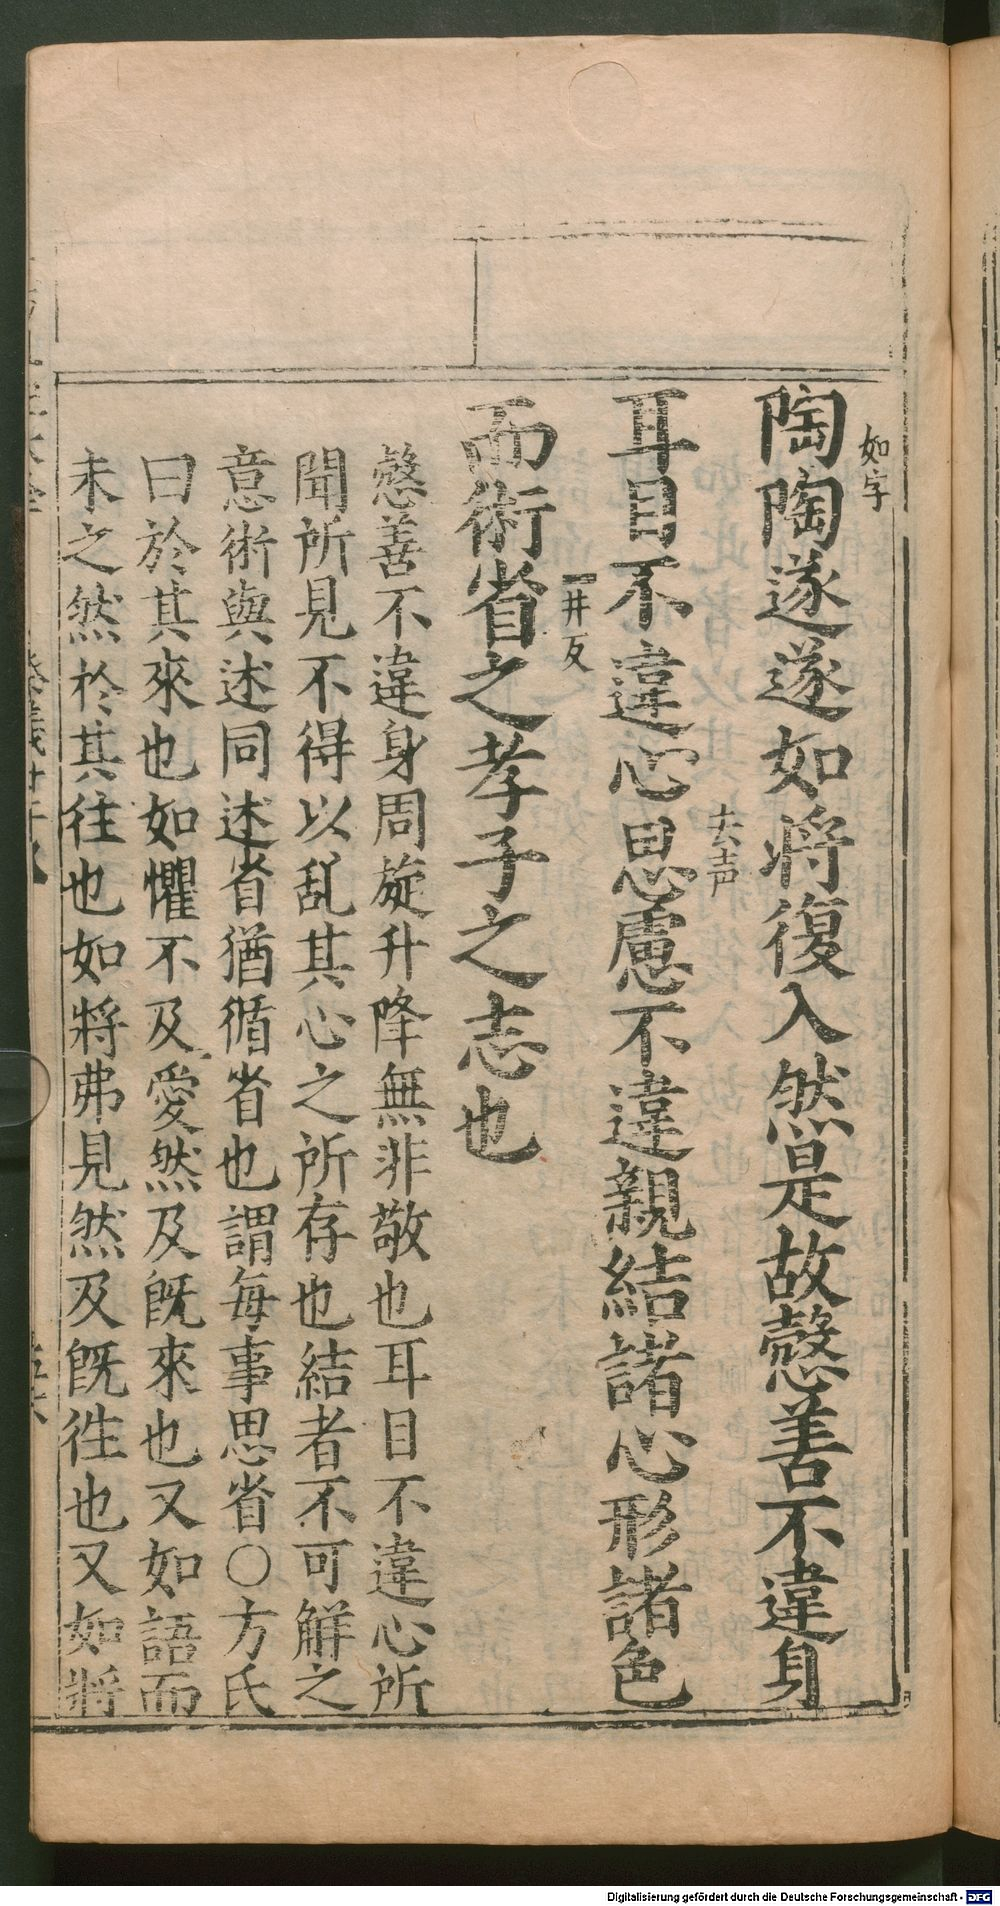 如字
陶陶遂遂如將復入然是故慤善不違身
去声
耳目不違心思慮不違親結諸心形諸色
一井反
而術省之孝子之志也
慤善不違身周旋升降無非敬也耳目不違心所
聞所見不得以乱其心之所存也結者不可觧之
意術與述同述省猶循省也謂每事思省○方氏
曰於其來也如懼不及愛然及旣來也又如語而
未之然於其往也如將弗見然及旣徃也又如將
Digitalisierung gefördert durch die Deutsche Forschungsgemeinschaft - DFG